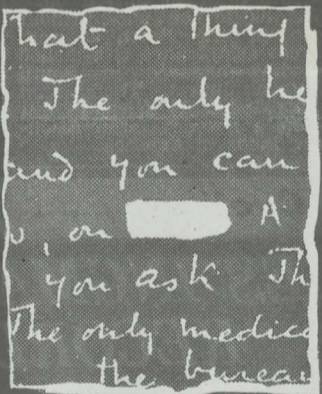 that a thing
The only he
and you can
, on A
you ask Th
The only medica
the bureau